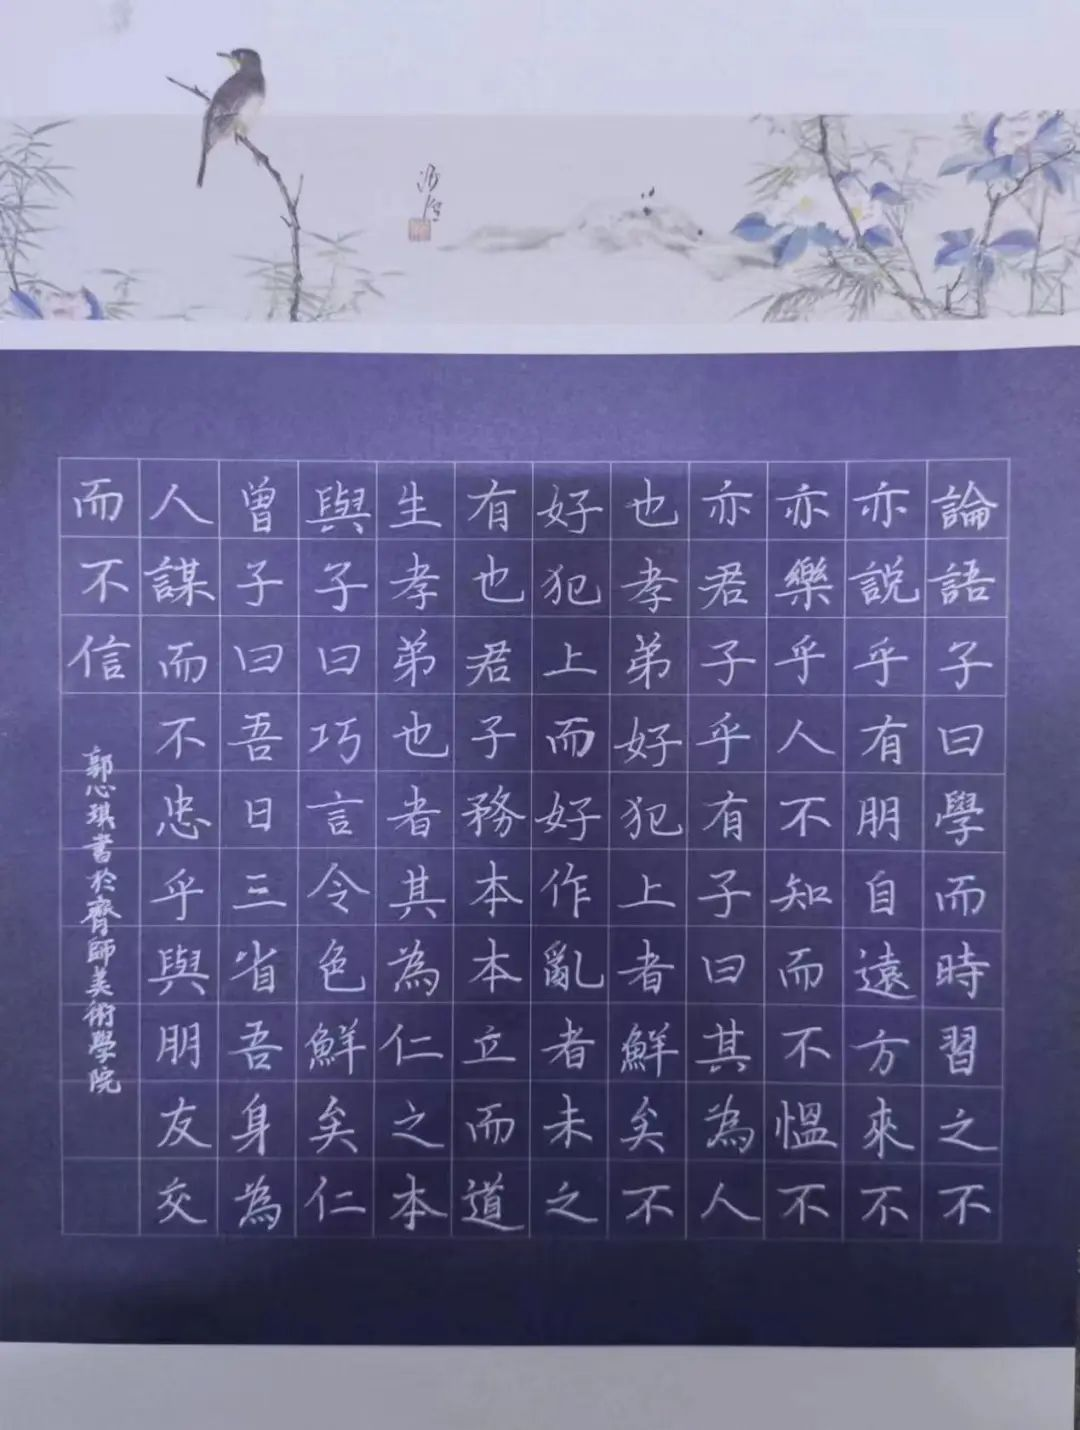 論語子曰學而時習之不
亦說乎有朋自遠方來不
亦樂乎人不知而不愠不
亦君子乎有子曰其為人
也孝弟好犯上者鮮矣不
好犯上而好作亂者未之
有也君子務本本立而道
生孝弟也者其為仁之本
與子曰巧言令色鮮矣仁
曾子曰吾日三省吾身為
人謀而不忠乎與朋友交
而不信
郭心琪書於齊師美術學院